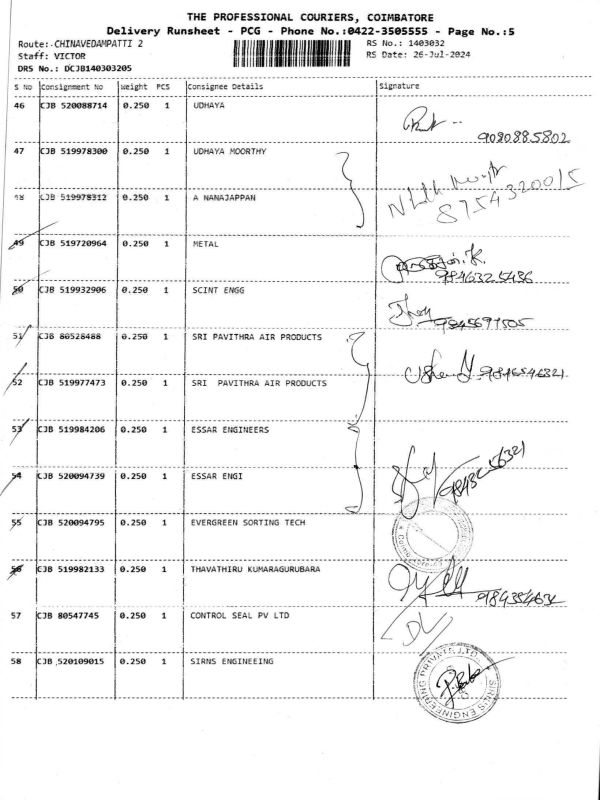 THE PROFESSIONAL COURIERS, COIMBATORE
Delivery Runsheet - PCG - Phone No.:0422-3505555 - Page No.:5
Route: CHINAVEDAMPATTI 2 RS No.: 1403032
Staff: VICTOR RS Date: 26-Jul-2024
DRS No.: DCJB140303205
S No Consignment No Weight PCS Consignee Details Signature
46 CJB 520088714 0.250 1 UDHAYA
9080885802
47 CJB 519978300 0.250 1 UDHAYA MOORTHY
48 CJB 519978312 0.250 1 A NANAJAPPAN
8754320015
49 CJB 519720964 0.250 1 METAL
9846325436
50 CJB 519932906 0.250 1 SCINT ENGG
51 CJB 80528488 0.250 1 SRI PAVITHRA AIR PRODUCTS
52 CJB 519977473 0.250 1 SRI PAVITHRA AIR PRODUCTS
53 CJB 519984206 0.250 1 ESSAR ENGINEERS
54 CJB 520094739 0.250 1 ESSAR ENGI
55 CJB 520094795 0.250 1 EVERGREEN SORTING TECH
56 CJB 519982133 0.250 1 THAVATHIRU KUMARAGURUBARA
57 CJB 80547745 0.250 1 CONTROL SEAL PV LTD
DL
58 CJB 520109015 0.250 1 SIRNS ENGINEEING
SIRNS ENGINEERING PRIVATE LTD